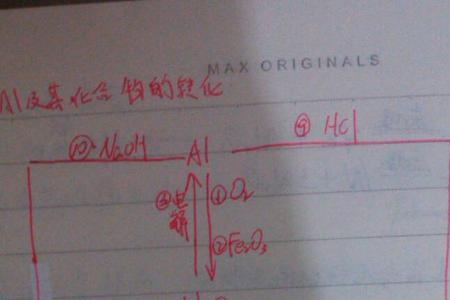 MAX ORIGINALS
Al及其化合物的转化
⑩ NaOH Al ⑨ HCl
③电解 ①O₂
②Fe₂O₃